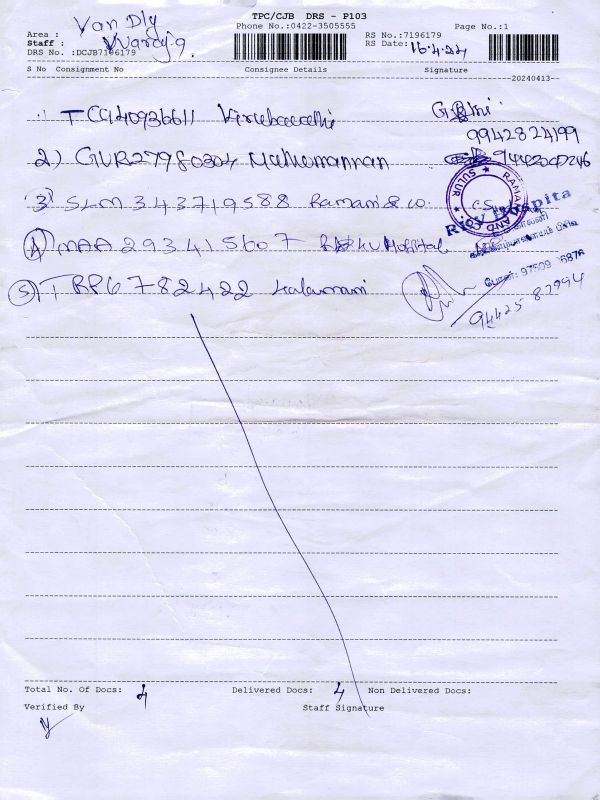 TPC/CJB DRS - P103
Phone No.:0422-3505555 Page No.:1
Area : Van Dly
RS No.:7196179
Staff :
RS Date: 16.4.24
DRS No. :DCJB7196179
S No Consignment No Consignee Details Signature
20240413
1) TCG140936611
9942824199
2) GUR27980304 Muthumannan
3) SLM 343719588 Ramani & co
RAMANI AND CO
SULUR
4) MAA 293415607 RKV Hospital
RKV Hospital
5) TRP6782422 Kalamani
94425 87994
Total No. Of Docs: 4 Delivered Docs: 4 Non Delivered Docs:
Verified By Staff Signature